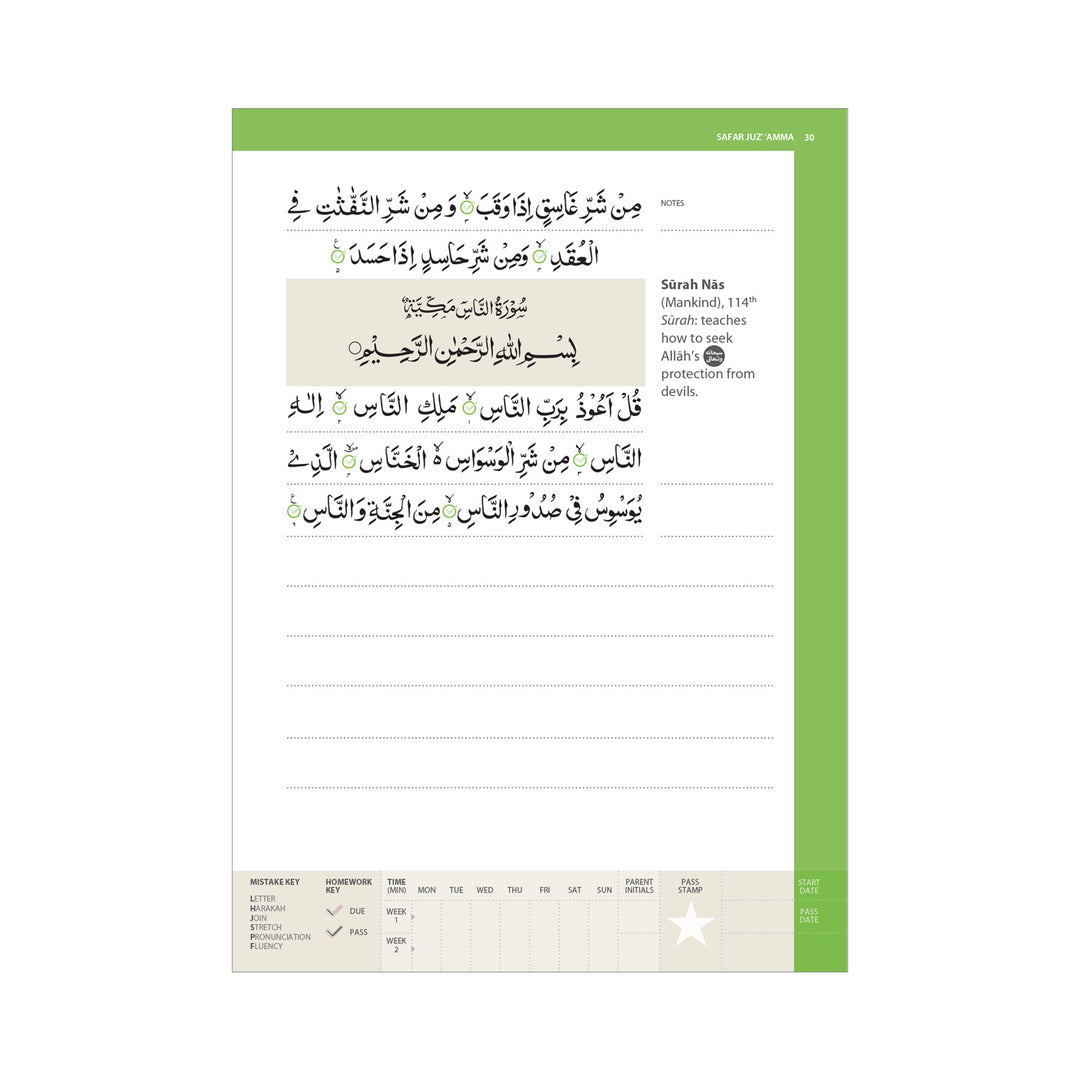 SAFAR JUZ' 'AMMA 30
مِنْ شَرِّ غَاسِقٍ اِذَا وَقَبَ ۙ۝۳ وَ مِنْ شَرِّ النَّفّٰثٰتِ فِی
الْعُقَدِ ۙ۝۴ وَمِنْ شَرِّ حَاسِدٍ اِذَا حَسَدَ ۝۵ ع
سُوْرَةُ النَّاسِ مَكِّیَّةٌ
بِسْمِ اللّٰهِ الرَّحْمٰنِ الرَّحِیْمِ
قُلْ اَعُوْذُ بِرَبِّ النَّاسِ ۙ۝۱ مَلِكِ النَّاسِ ۙ۝۲ اِلٰهِ
النَّاسِ ۙ۝۳ مِنْ شَرِّ الْوَسْوَاسِ ۙ۬ الْخَنَّاسِ ۪ۙ۝۴ الَّذِیْ
یُوَسْوِسُ فِیْ صُدُوْرِ النَّاسِ ۙ۝۵ مِنَ الْجِنَّةِ وَ النَّاسِ ۝۶ ع
NOTES
Sūrah Nās
(Mankind), 114th
Sūrah: teaches
how to seek
Allāh's سبحانه وتعالى
protection from
devils.
MISTAKE KEY
LETTER
HARAKAH
JOIN
STRETCH
PRONUNCIATION
FLUENCY
HOMEWORK
KEY
DUE
PASS
TIME
(MIN) MON TUE WED THU FRI SAT SUN
WEEK
1
WEEK
2
PARENT
INITIALS
PASS
STAMP
START
DATE
PASS
DATE